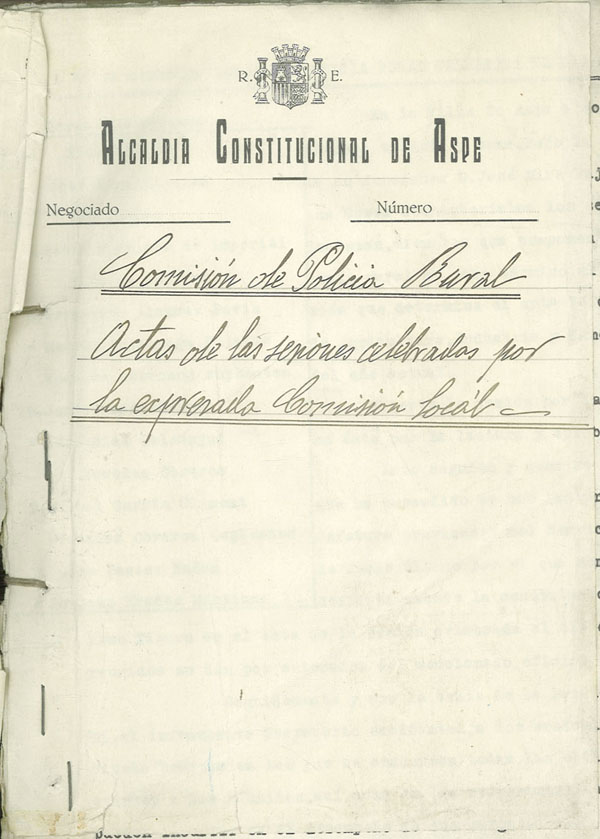 R. E.
ALCALDIA CONSTITUCIONAL DE ASPE
Negociado Número
Comisión de Policia Rural
Actas de las sesiones celebradas por
la expresada Comisión local